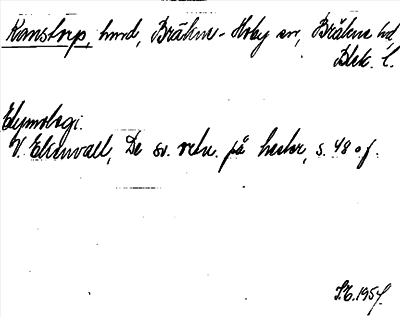 Kanstorp, hmd, Bräkne-Hoby sn, Bräkne hd,
Blek. l.
Etymologi.
V. Ekenvall, De sv. ortn. på hester, s. 48 o f.
S.E. 1954.